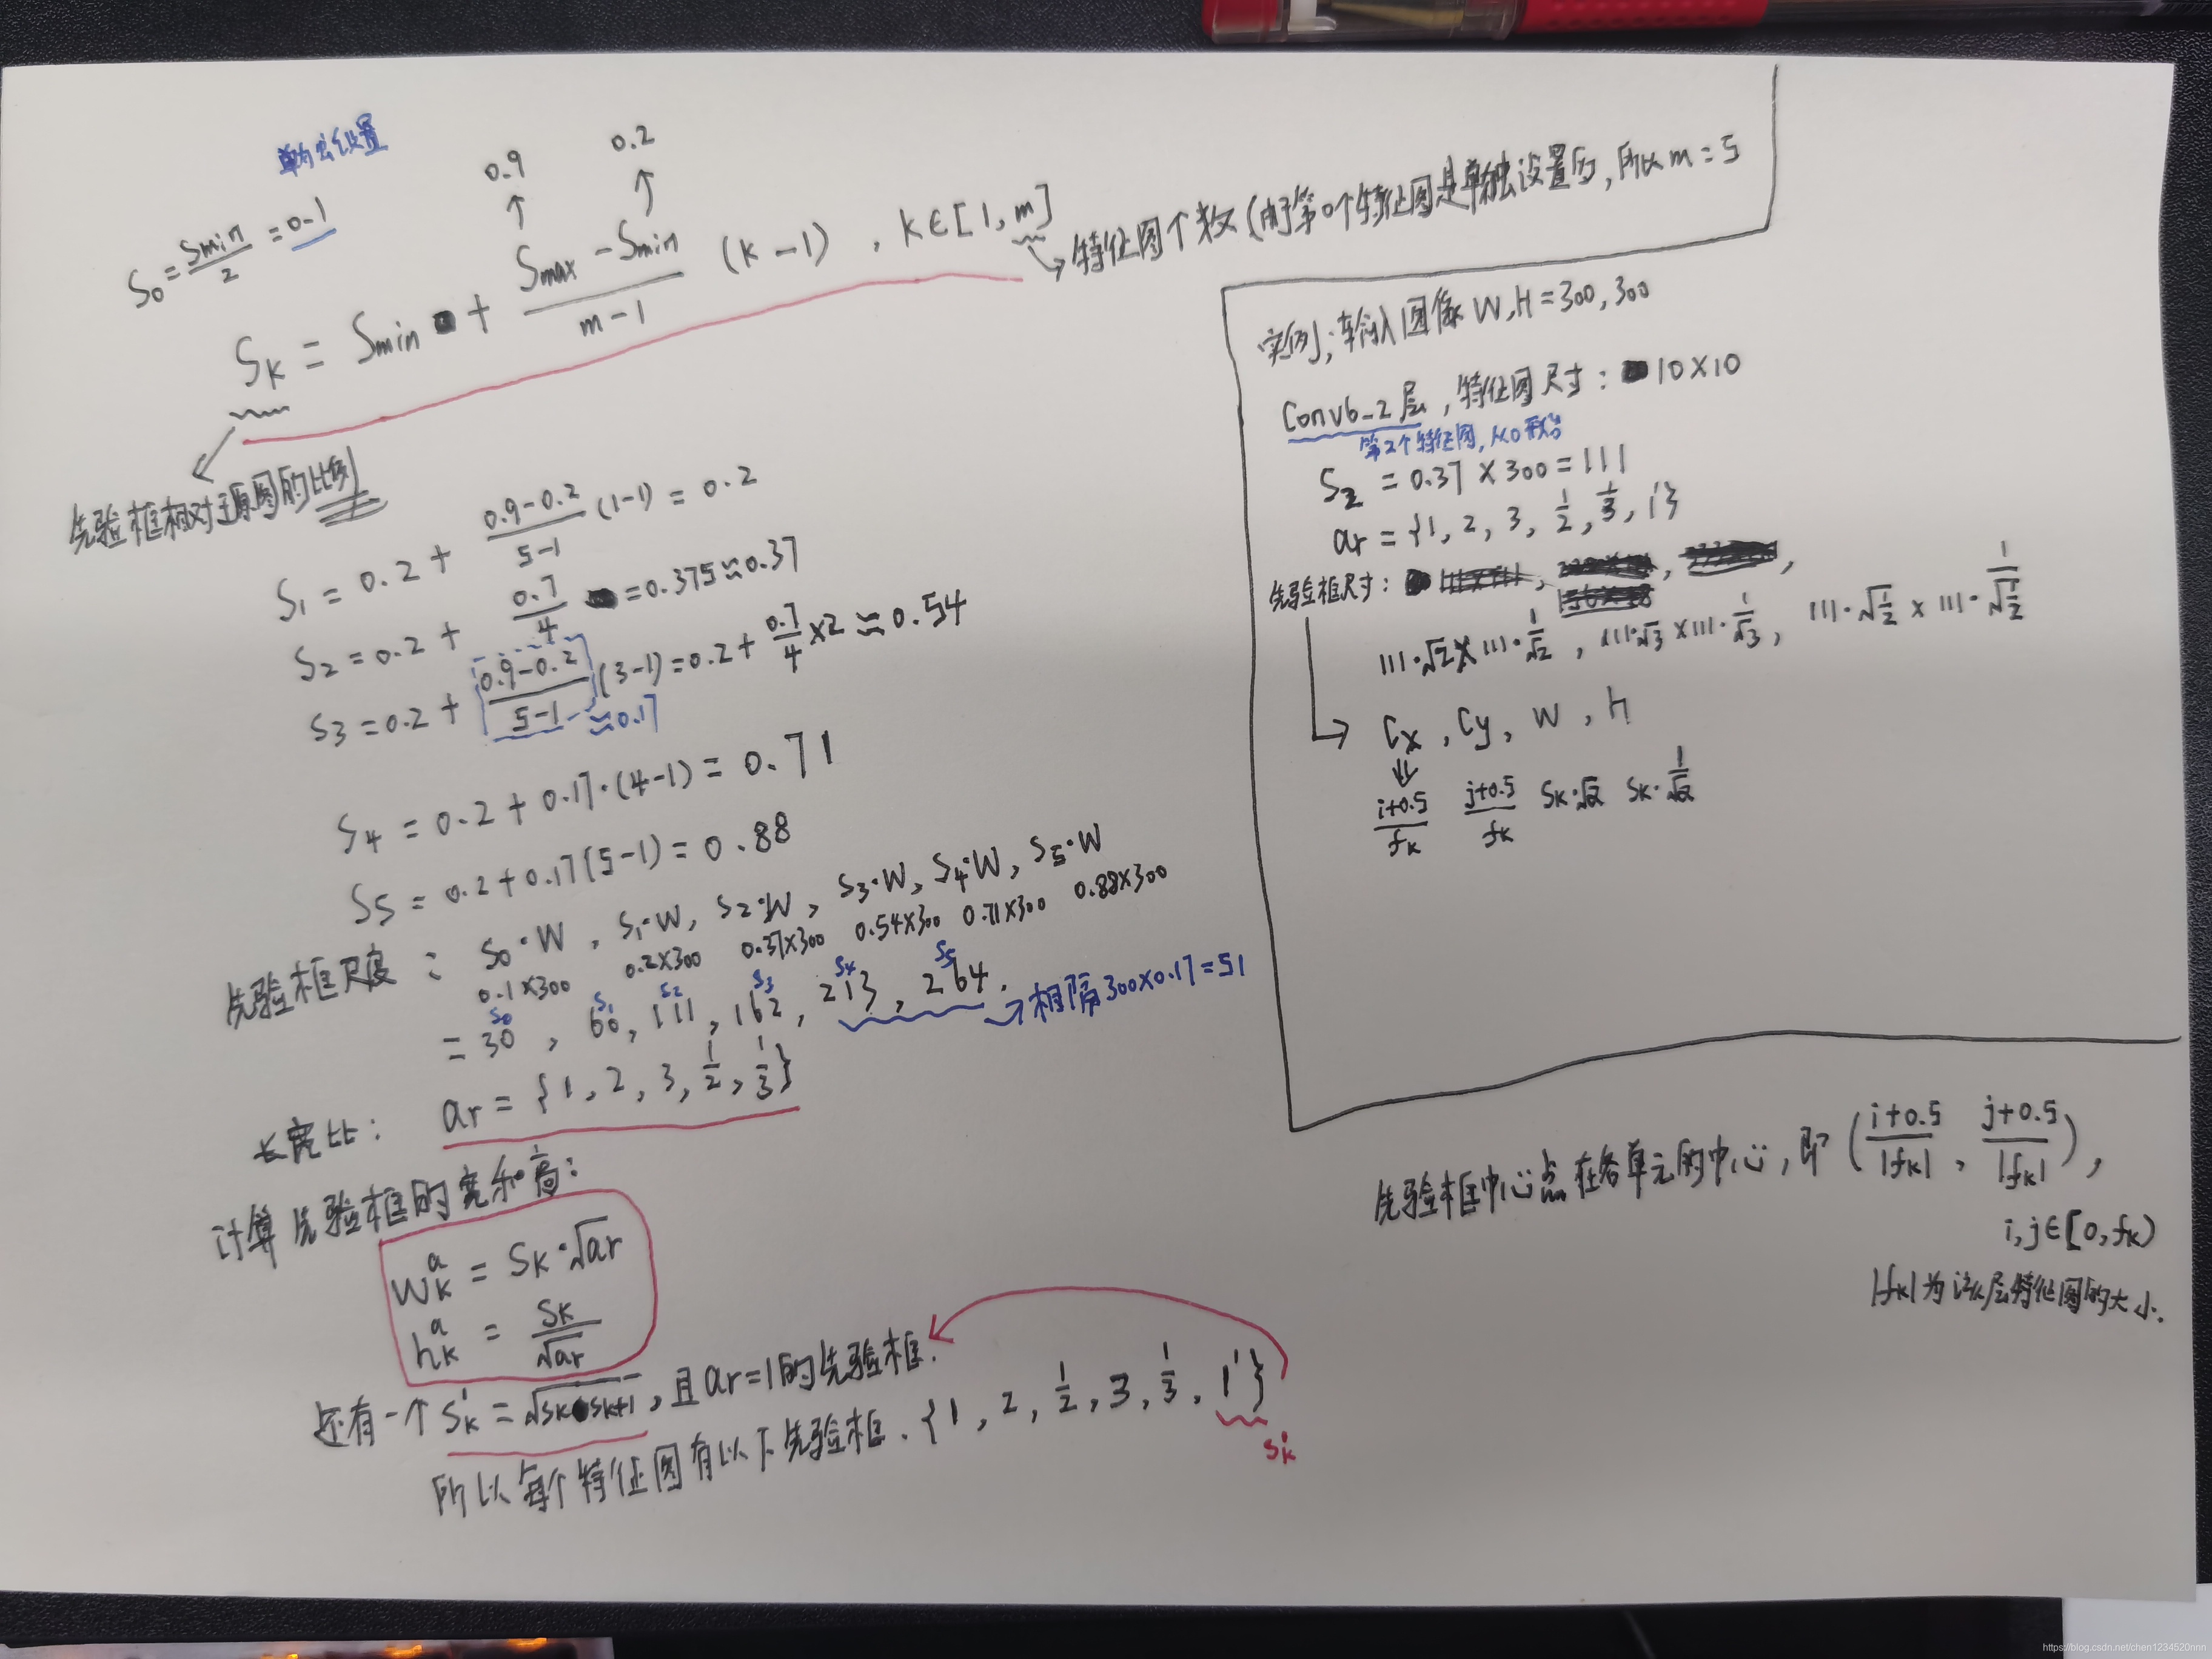 单独设置
S₀ = Smin/2 = 0.1
0.9 0.2
↑ ↑
Sk = Smin + (Smax - Smin)/(m-1) (k-1) , k∈[1, m]
→特征图个数(由于第0个特征图是单独设置的, 所以m=5
先验框相对于原图的比例
S₁ = 0.2 + (0.9-0.2)/(5-1) (1-1) = 0.2
S₂ = 0.2 + 0.7/4 = 0.375≈0.37
S₃ = 0.2 + (0.9-0.2)/(5-1) (3-1) = 0.2 + 0.7/4 ×2 ≈ 0.54
≈0.17
S₄ = 0.2 + 0.17·(4-1) = 0.71
S₅ = 0.2 + 0.17(5-1) = 0.88
先验框尺度: S₀·W, S₁·W, S₂·W, S₃·W, S₄·W, S₅·W
0.1×300 0.2×300 0.37×300 0.54×300 0.71×300 0.88×300
S₀ S₁ S₂ S₃ S₄ S₅
= 30, 60, 111, 162, 213, 264.
→相隔300×0.17=51
长宽比: ar = {1, 2, 3, 1/2, 1/3}
计算先验框的宽和高:
wₖᵃ = Sk·√ar
hₖᵃ = Sk/√ar
还有一个 Sk' = √SkSk+1, 且ar=1的先验框.
所以每个特征图有以下先验框. {1, 2, 1/2, 3, 1/3, 1'}
Sk'
实例; 输入图像 W,H=300,300
Conv6_2层, 特征图尺寸: 10×10
第2个特征图, 从0开始
S₂ = 0.37×300=111
ar = {1, 2, 3, 1/2, 1/3, 1'}
先验框尺寸: , , ,
111·√2×111·1/√2, 111·√3×111·1/√3, 111·√1/2 × 111·1/√1/2
Cx, Cy, W, h
(i+0.5)/fk (j+0.5)/fk Sk·√2 Sk·1/√2
先验框中心点在各单元的中心, 即 ((i+0.5)/|fk|, (j+0.5)/|fk|),
i,j∈[0,fk)
|fk|为该层特征图的大小.
https://blog.csdn.net/chen1234520nnn